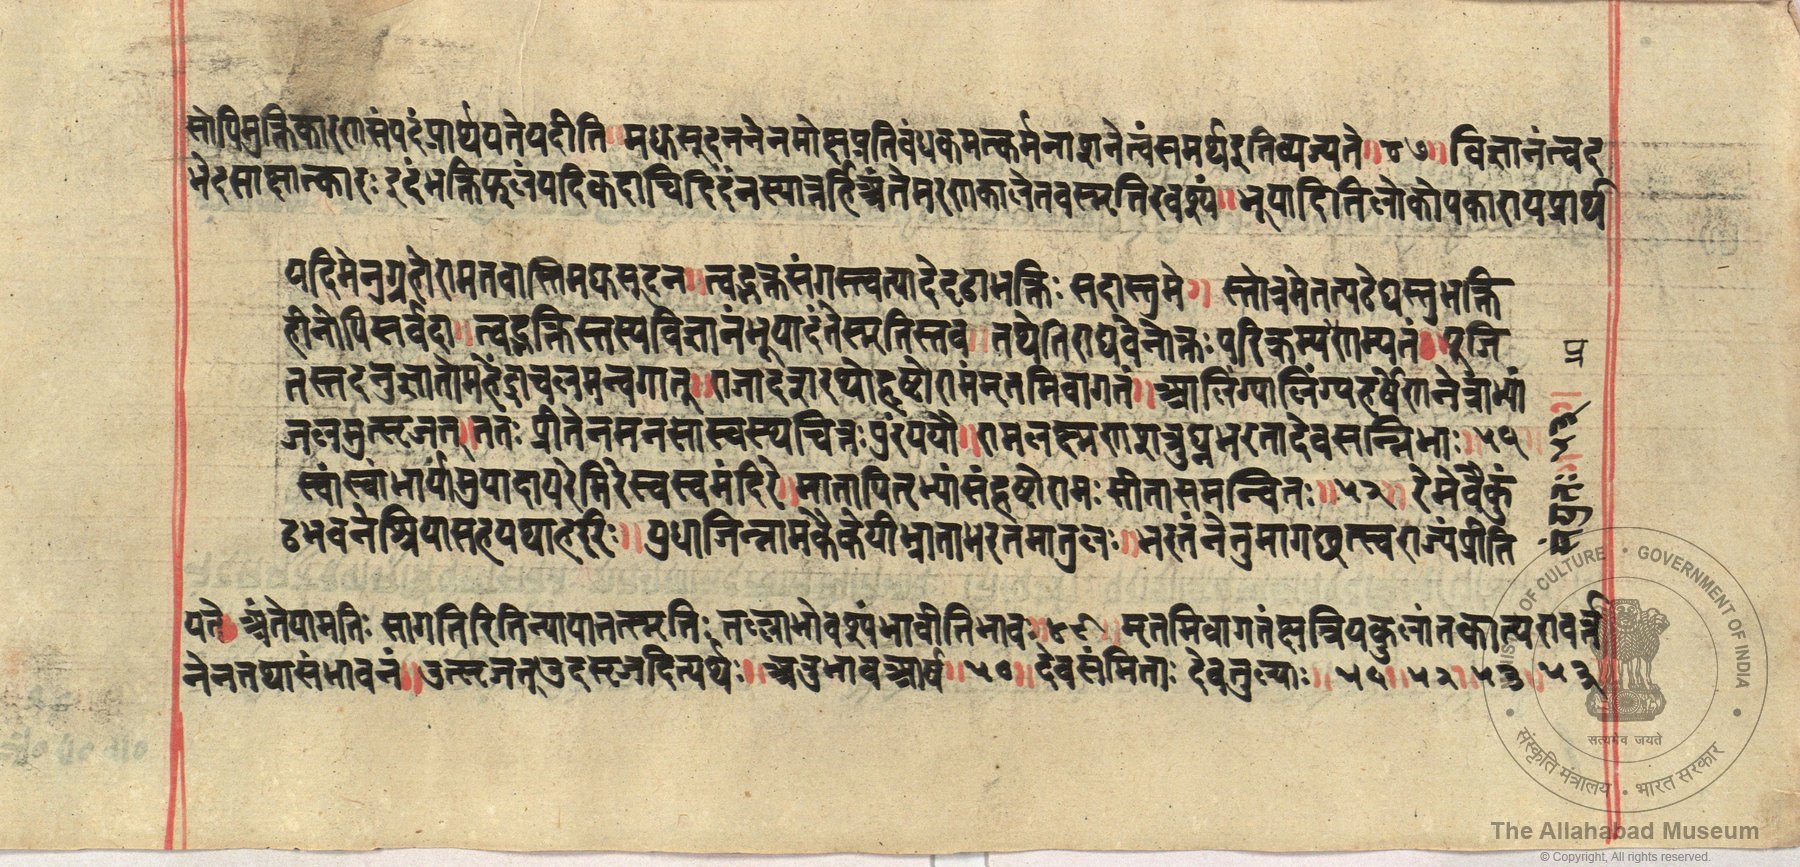 सोपिमुक्तिकारणसंपदंप्रार्थयतेयदीति॥मधुसूदननेनमोक्षप्रतिबंधकमत्कर्मनाशनेत्वंसमर्थइतिव्यज्यते॥४७॥विज्ञानंत्वद
भेदसाक्षात्कारः इदंभक्तिफलंयदिकदाचिदिदंनस्यात्तर्हिअंतेमरणकालेतवस्मृतिरवश्यं॥भूयादितिलोकोपकारायप्रार्थ
यदिमेनुग्रहोरामतवास्तिमधुसूदन॥त्वद्भक्तसंगस्त्वत्पादेदृढाभक्तिः सदास्तुमे॥ स्तोत्रमेतत्पठेद्यस्तुभक्ति
हीनोपिसर्वदा॥त्वद्भक्तिस्तस्यविज्ञानंभूयादंतेस्मृतिस्तव॥तथेतिराघवेनोक्तः परिक्रम्यप्रणम्यतं॥पूजि
तस्तदनुज्ञातोमहेंद्राचलमन्वगात्॥राजादशरथोहृष्टोरामंमृतमिवागतं॥आलिंग्यालिंग्यहर्षेणनेत्राभ्यां
जलमुत्सृजत्॥ततः प्रीतेनमनसास्वस्थचित्तः पुरंययौ॥रामलक्ष्मणशत्रुघ्नभरतादेवसन्निभाः॥५१
स्वांस्वांभार्यामुपादायरेमिरेस्वस्वमंदिरे॥मातापितृभ्यांसंहृष्टोरामः सीतासमन्वितः॥५२॥रेमेवैकुं
ठभवनेश्रियासहयथाहरिः॥युधाजिन्नामकैकेयीभ्राताभरतमातुलः॥भरतंनेतुमागछत्स्वराज्यंप्रीति
यते अंतेयामतिः सागतिरितिन्यायात् तत्स्मृतिः तल्लाभोवश्यंभावीतिभावः॥४९॥मृतमिवागतंक्षत्रियकुलांतकात्
नेनतथासंभावनं॥उत्सृजत्उदसृजदित्यर्थः॥अडभावआर्षः॥५०॥देवसंमिताः देवतुल्याः॥५१॥५२॥५३॥
प्र
The Allahabad Museum
© Copyright, All rights reserved.
MINISTRY OF CULTURE • GOVERNMENT OF INDIA
संस्कृति मंत्रालय • भारत सरकार
सत्यमेव जयते